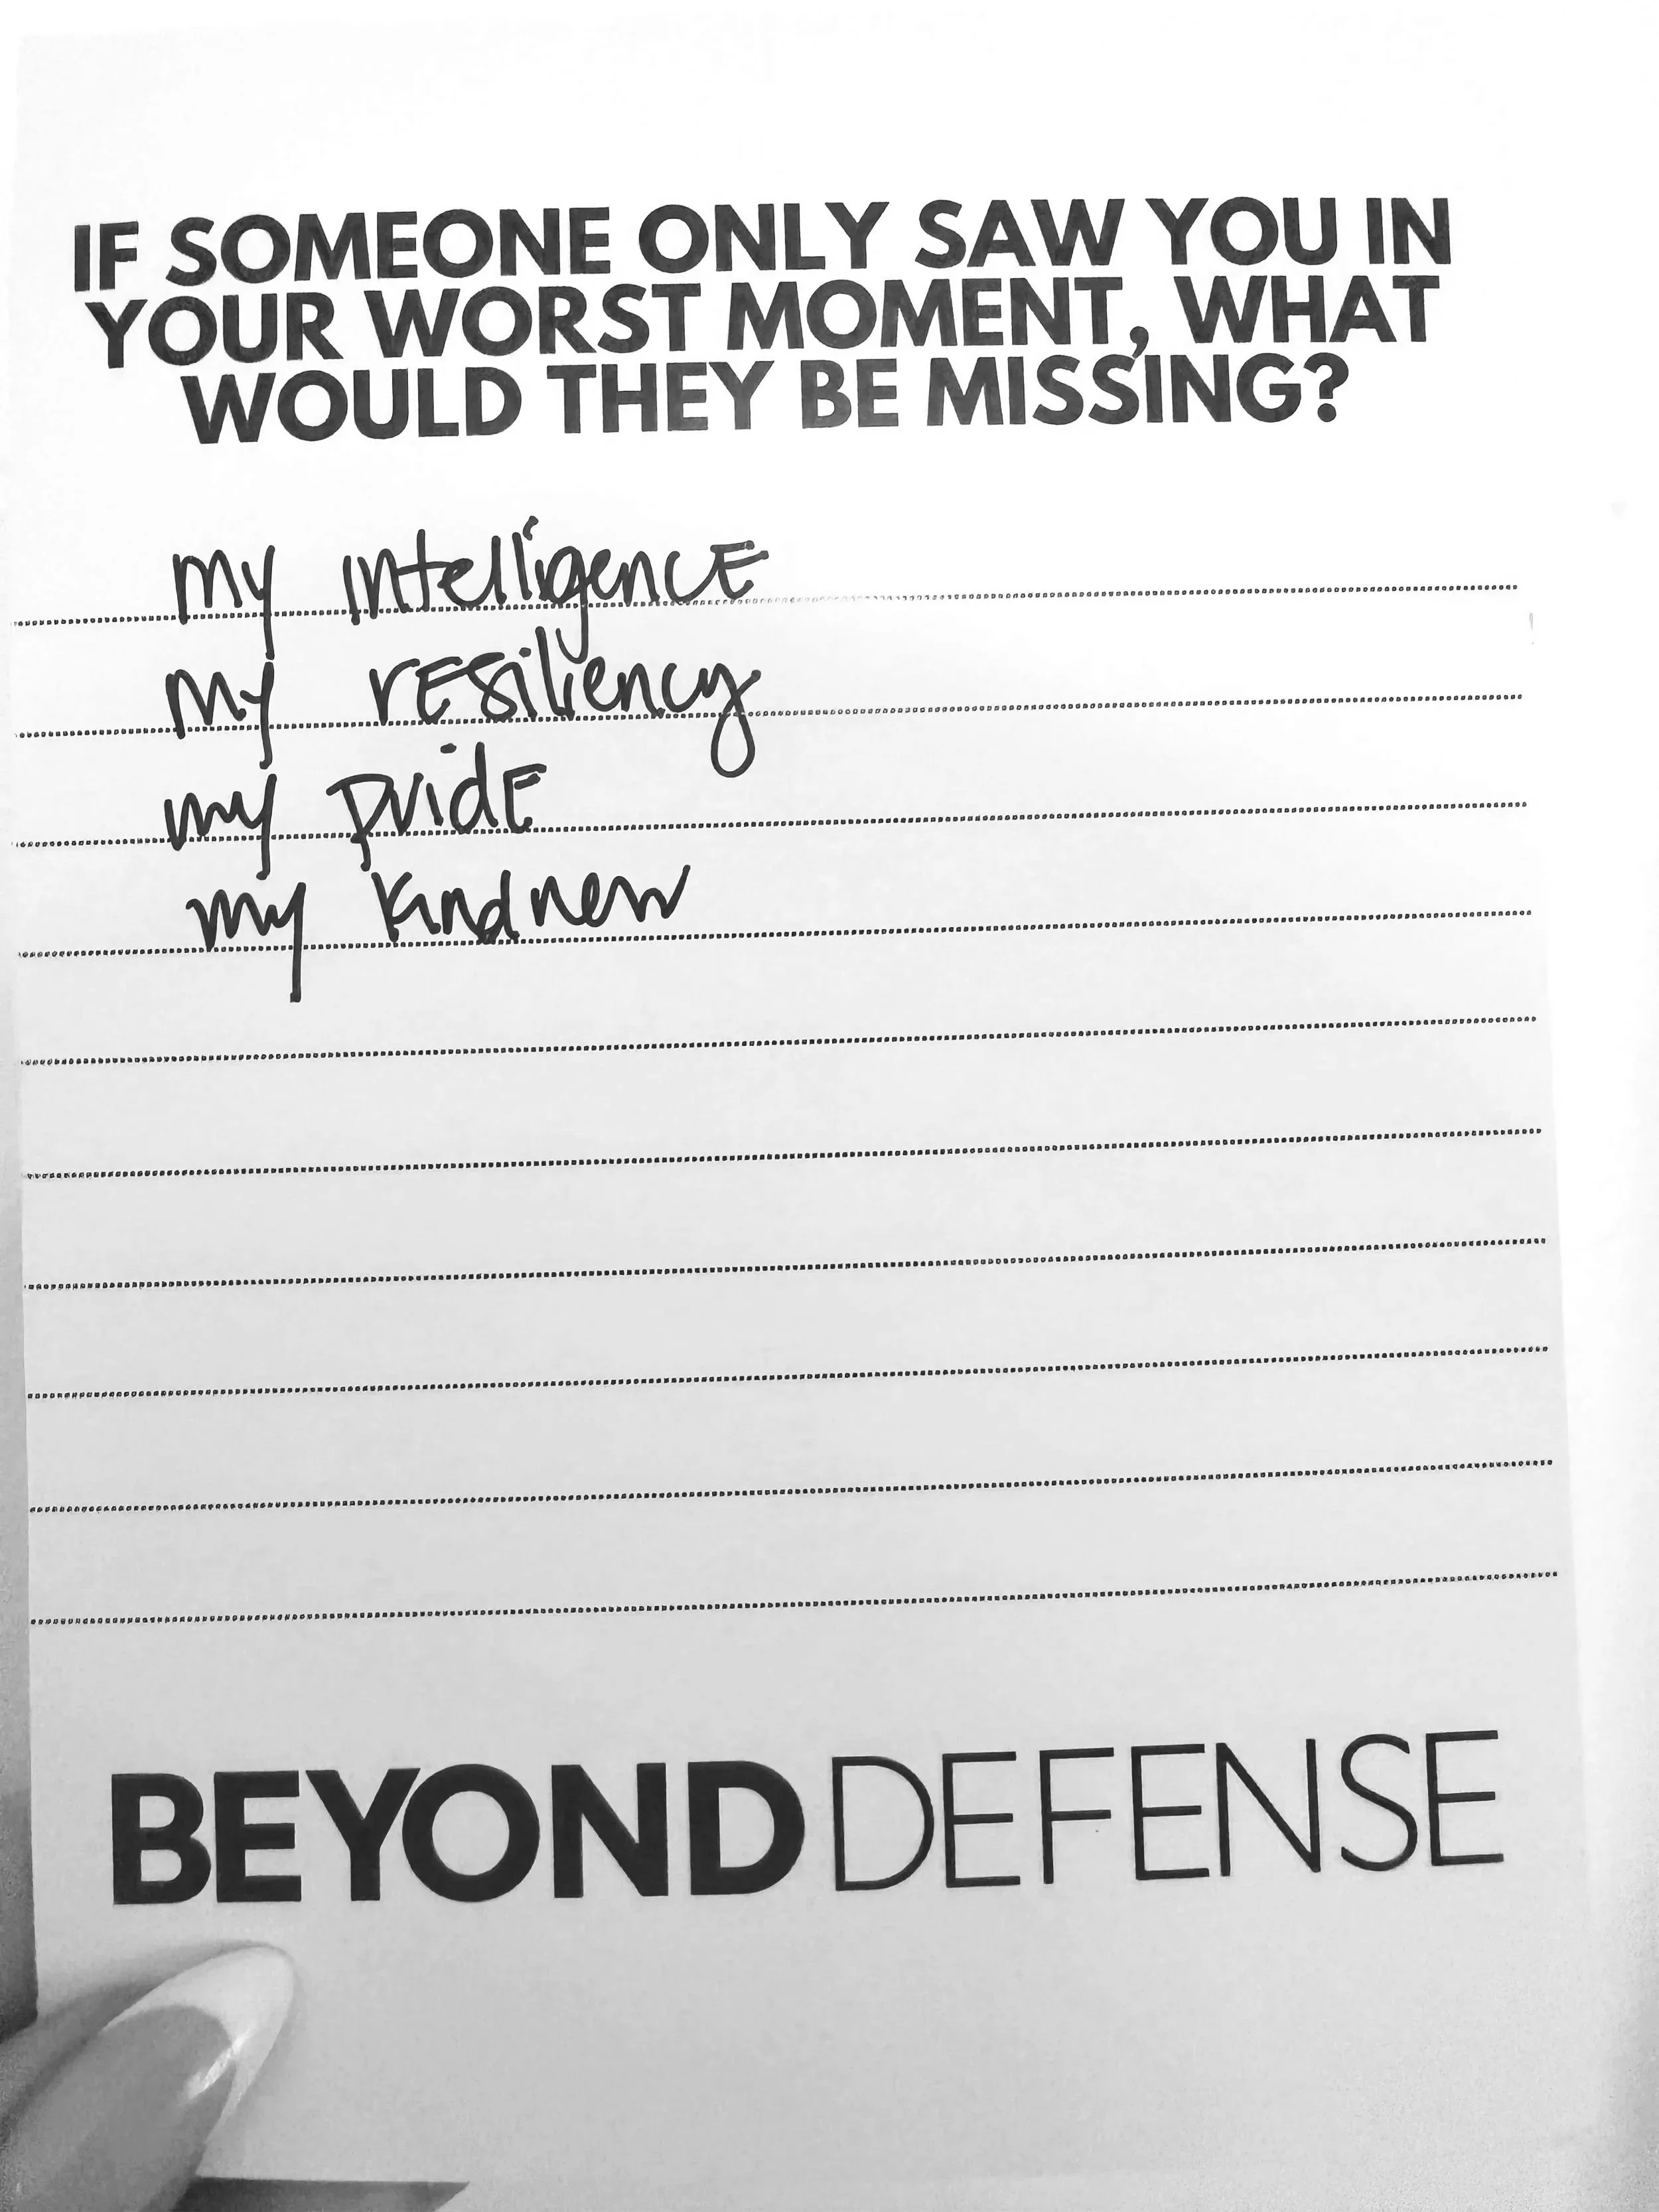 IF SOMEONE ONLY SAW YOU IN
YOUR WORST MOMENT, WHAT
WOULD THEY BE MISSING?
my intelligence
my resiliency
my pride
my kindness
BEYOND DEFENSE